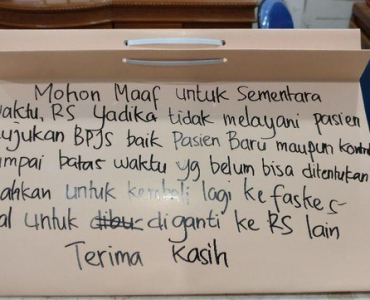 Mohon Maaf untuk Sementara
waktu, RS Yadika tidak melayani pasien
ujukan BPJS baik Pasien Baru maupun kontro
mpai batas waktu yg belum bisa ditentukan
ahkan untuk kembali lagi ke faskes
al untuk dibu diganti ke RS lain
Terima Kasih